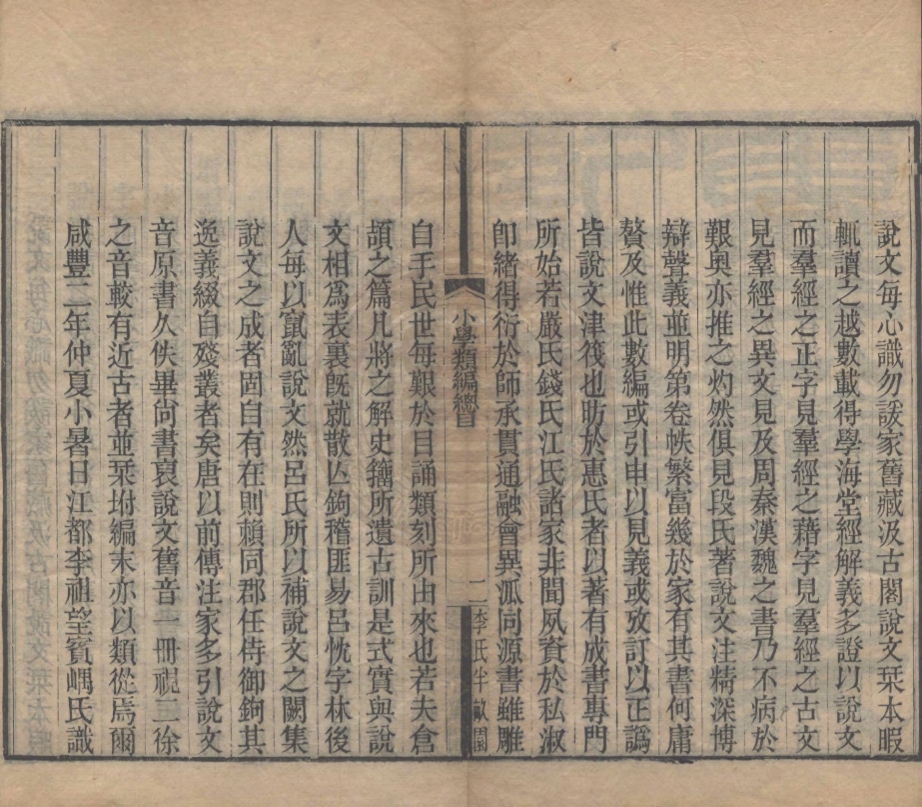 說文每心識勿諼家舊藏汲古閣說文栞本暇
輒讀之越數載得學海堂經解義多證以說文
而羣經之正字見羣經之藉字見羣經之古文
見羣經之異文見及周秦漢魏之書乃不病於
艱奧亦推之灼然俱見段氏著說文注精深博
辯聲義並明第卷帙繁富幾於家有其書何庸
贅及惟此數編或引申以見義或攷訂以正譌
皆說文津筏也昉於惠氏者以著有成書專門
所始若嚴氏錢氏江氏諸家非閒夙資於私淑
卽緒得衍於師承貫通融會異泒同源書雖雕
小學類編總目
一
李氏半畝園
自手民世每艱於目誦類刻所由來也若夫倉
頡之篇凡將之解史籒所遺古訓是式實與說
文相爲表裏旣就散亾鉤稽匪易呂忱字林後
人每以竄亂說文然呂氏所以補說文之闕集
說文之成者固自有在則賴同郡任侍御鉤其
逸義綴自殘叢者矣唐以前傳注家多引說文
音原書久佚畢尙書裒說文舊音一冊視二徐
之音較有近古者並栞坿編末亦以類從焉爾
咸豐二年仲夏小暑日江都李祖望賓嵎氏識